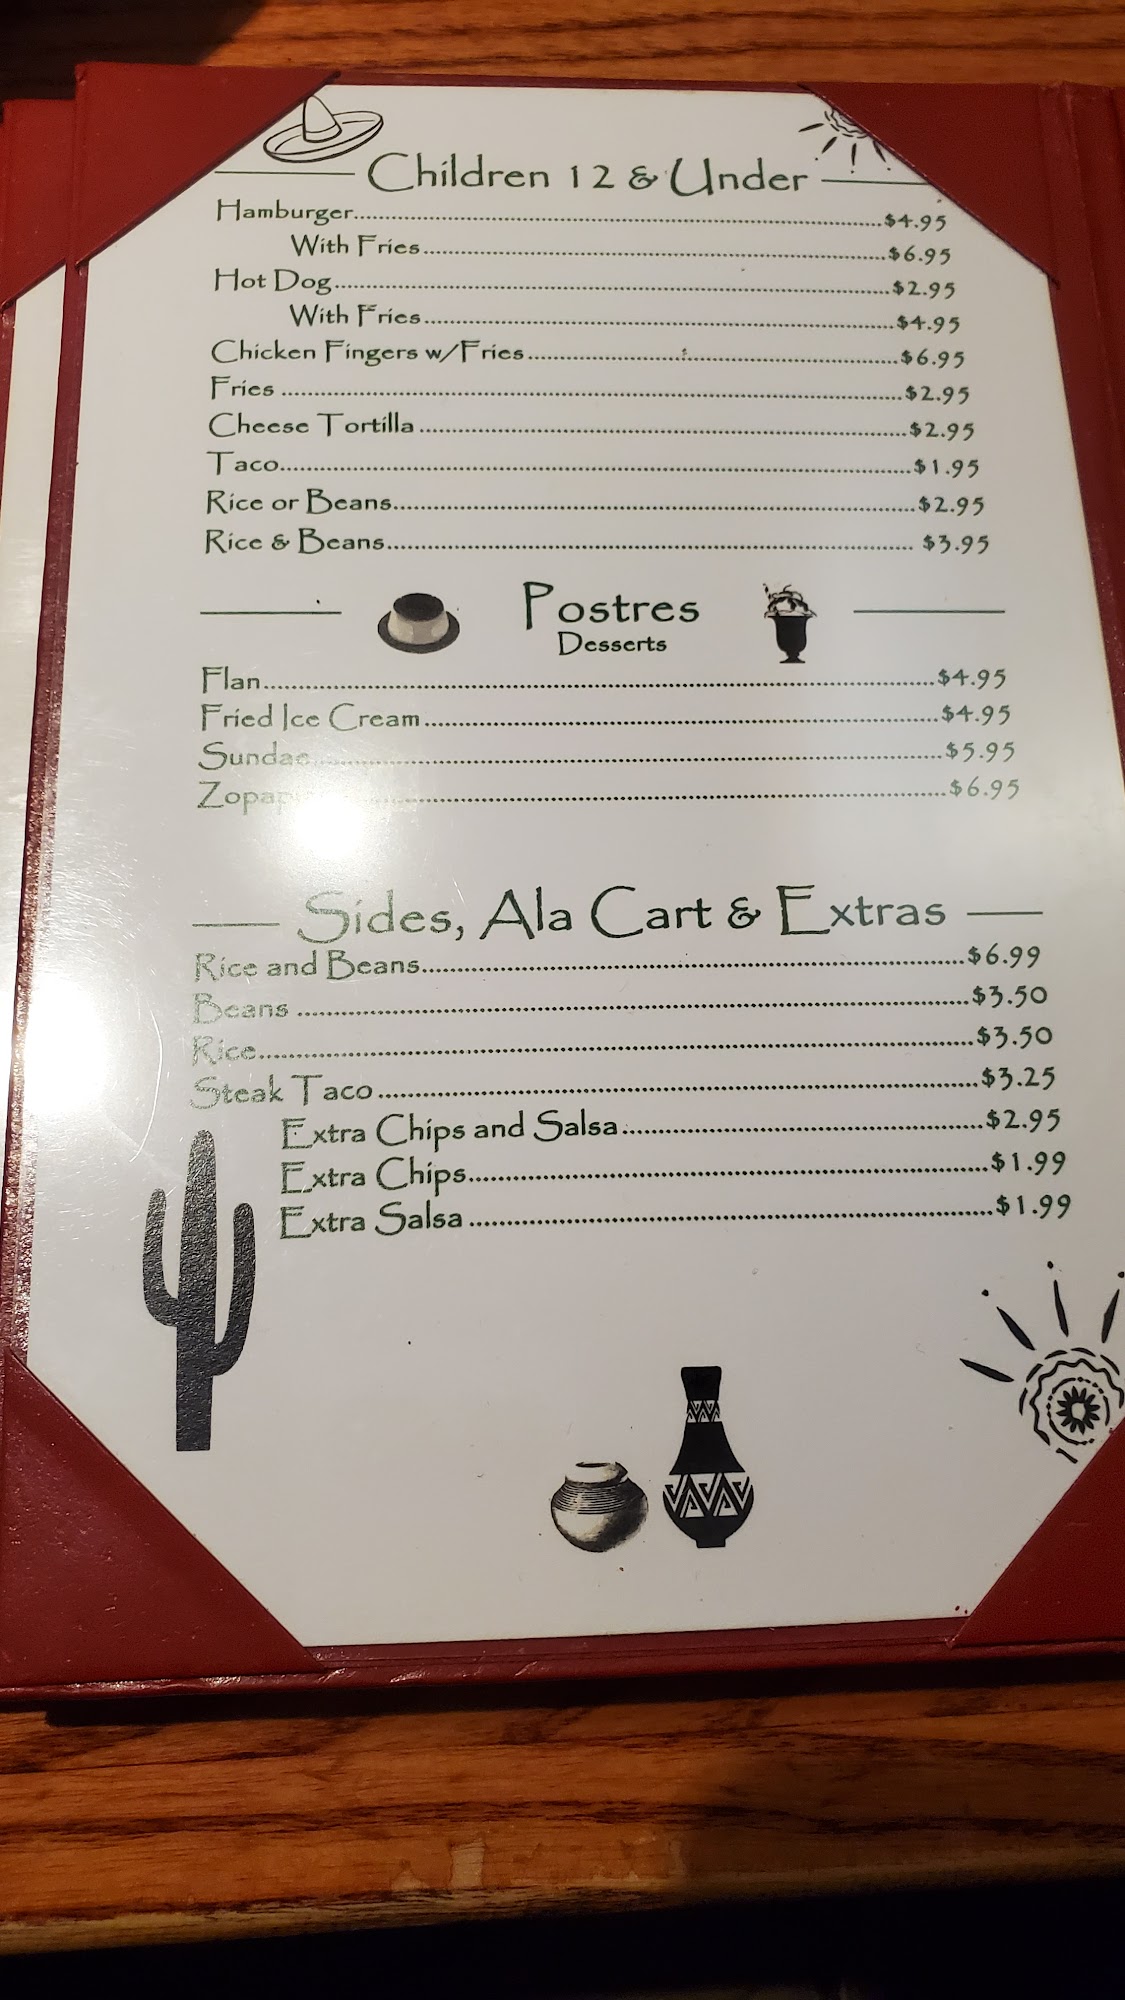 Children 12 & Under
Hamburger....................$4.95
With Fries....................$6.95
Hot Dog....................$2.95
With Fries....................$4.95
Chicken Fingers w/Fries....................$6.95
Fries ....................$2.95
Cheese Tortilla ....................$2.95
Taco....................$1.95
Rice or Beans....................$2.95
Rice & Beans.................... $3.95
Postres
Desserts
Flan....................$4.95
Fried Ice Cream....................$4.95
Sundae....................$5.95
....................$6.95
Sides, Ala Cart & Extras
Rice and Beans....................$6.99
Beans ....................$3.50
Rice....................$3.50
Steak Taco ....................$3.25
Extra Chips and Salsa....................$2.95
Extra Chips....................$1.99
Extra Salsa ....................$1.99